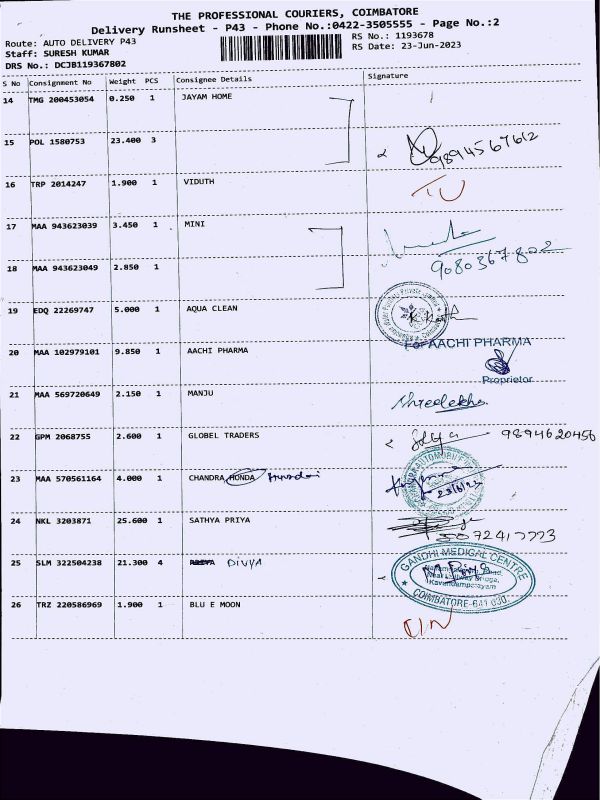 THE PROFESSIONAL COURIERS, COIMBATORE
Delivery Runsheet - P43 - Phone No.:0422-3505555 - Page No.:2
Route: AUTO DELIVERY P43
RS No.: 1193678
Staff: SURESH KUMAR
RS Date: 23-Jun-2023
DRS No.: DCJB119367802
S No Consignment No Weight PCS Consignee Details Signature
14 TMG 200453054 0.250 1 JAYAM HOME
15 POL 1580753 23.400 3
9894567612
16 TRP 2014247 1.900 1 VIDUTH
17 MAA 943623039 3.450 1 MINI
9080367802
18 MAA 943623049 2.850 1
19 EDQ 22269747 5.000 1 AQUA CLEAN
20 MAA 102979101 9.850 1 AACHI PHARMA
For AACHI PHARMA
Proprietor
21 MAA 569720649 2.150 1 MANJU
Shreelekha
22 GPM 2068755 2.600 1 GLOBEL TRADERS
9894620456
23 MAA 570561164 4.000 1 CHANDRA HONDA Hundai
23/6/23
24 NKL 3203871 25.600 1 SATHYA PRIYA
25 SLM 322504238 21.300 4 DIVYA
GANDHI MEDICAL CENTRE
Kavundampalayam
COIMBATORE-641 030.
26 TRZ 220586969 1.900 1 BLU E MOON